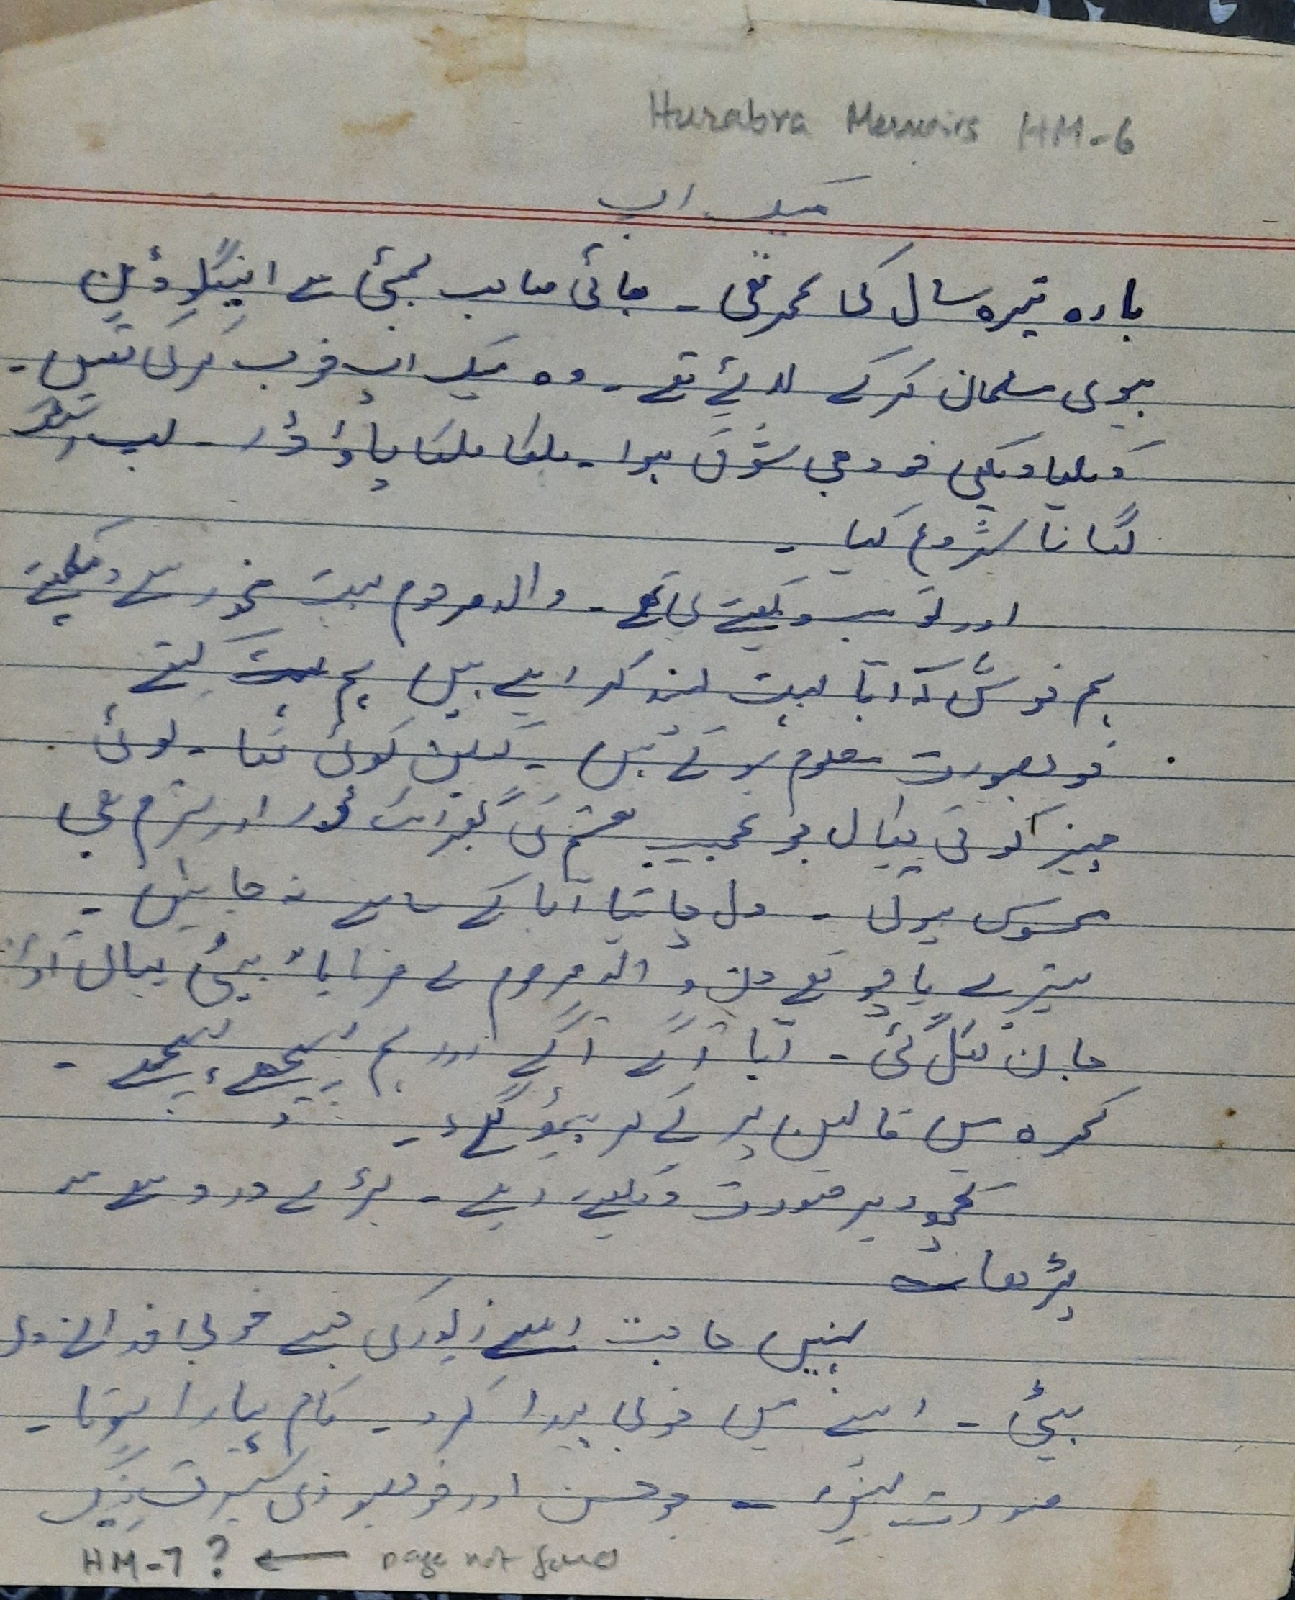 Hurabra Memoirs HM-6
میک اپ
بارہ تیرہ سال کی عمر تھی ۔ بھائی صاحب بمبئی سے اینگلو انڈین
بیوی مسلمان کرکے لائے تھے ۔ وہ میک اپ خوب کرتی تھیں ۔
دیکھا دیکھی خود بھی شوق ہوا ۔ ہلکا ہلکا پاؤڈر ۔ لپ اسٹک
لگانا شروع کیا ۔
اور تو سب دیکھتے ہی تھے ۔ والد مرحوم بہت غور سے دیکھتے
ہم خوش کہ ابا بہت پسند کر رہے ہیں ہم بہت
خوبصورت معلوم ہوتے ہیں ۔ لیکن کوئی
چیز یہاں جو عجیب قسم کی گھبراہٹ اور شرم بھی
محسوس ہوتی ۔ دل چاہتا ابا کے سامنے نہ جائیں ۔
تیسرے یا چوتھے دن والد مرحوم نے فرمایا " بیٹی یہاں آؤ "
جان نکل گئی ۔ ابا آگے آگے اور ہم پیچھے پیچھے ۔
کمرہ میں قالین پر لے کر بیٹھ گئے ۔
کچھ دیر صورت دیکھتے رہے ۔ بڑے درد سے
پڑھا
نہیں حاجت اسے زیور کی جسے خوبی خدا نے دی
بیٹی ۔ اپنے میں خوبی پیدا کرو ۔ کام پیارا ہوتا ۔
صورت نہیں ۔ جو حسن اور خوبصورتی سیرت
HM-7 ? ← page not found